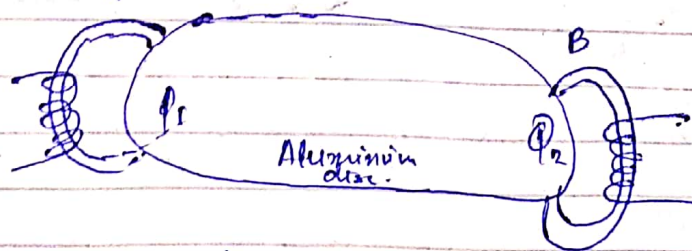 B
φ₁
Φ₂
Aluminium
disc.